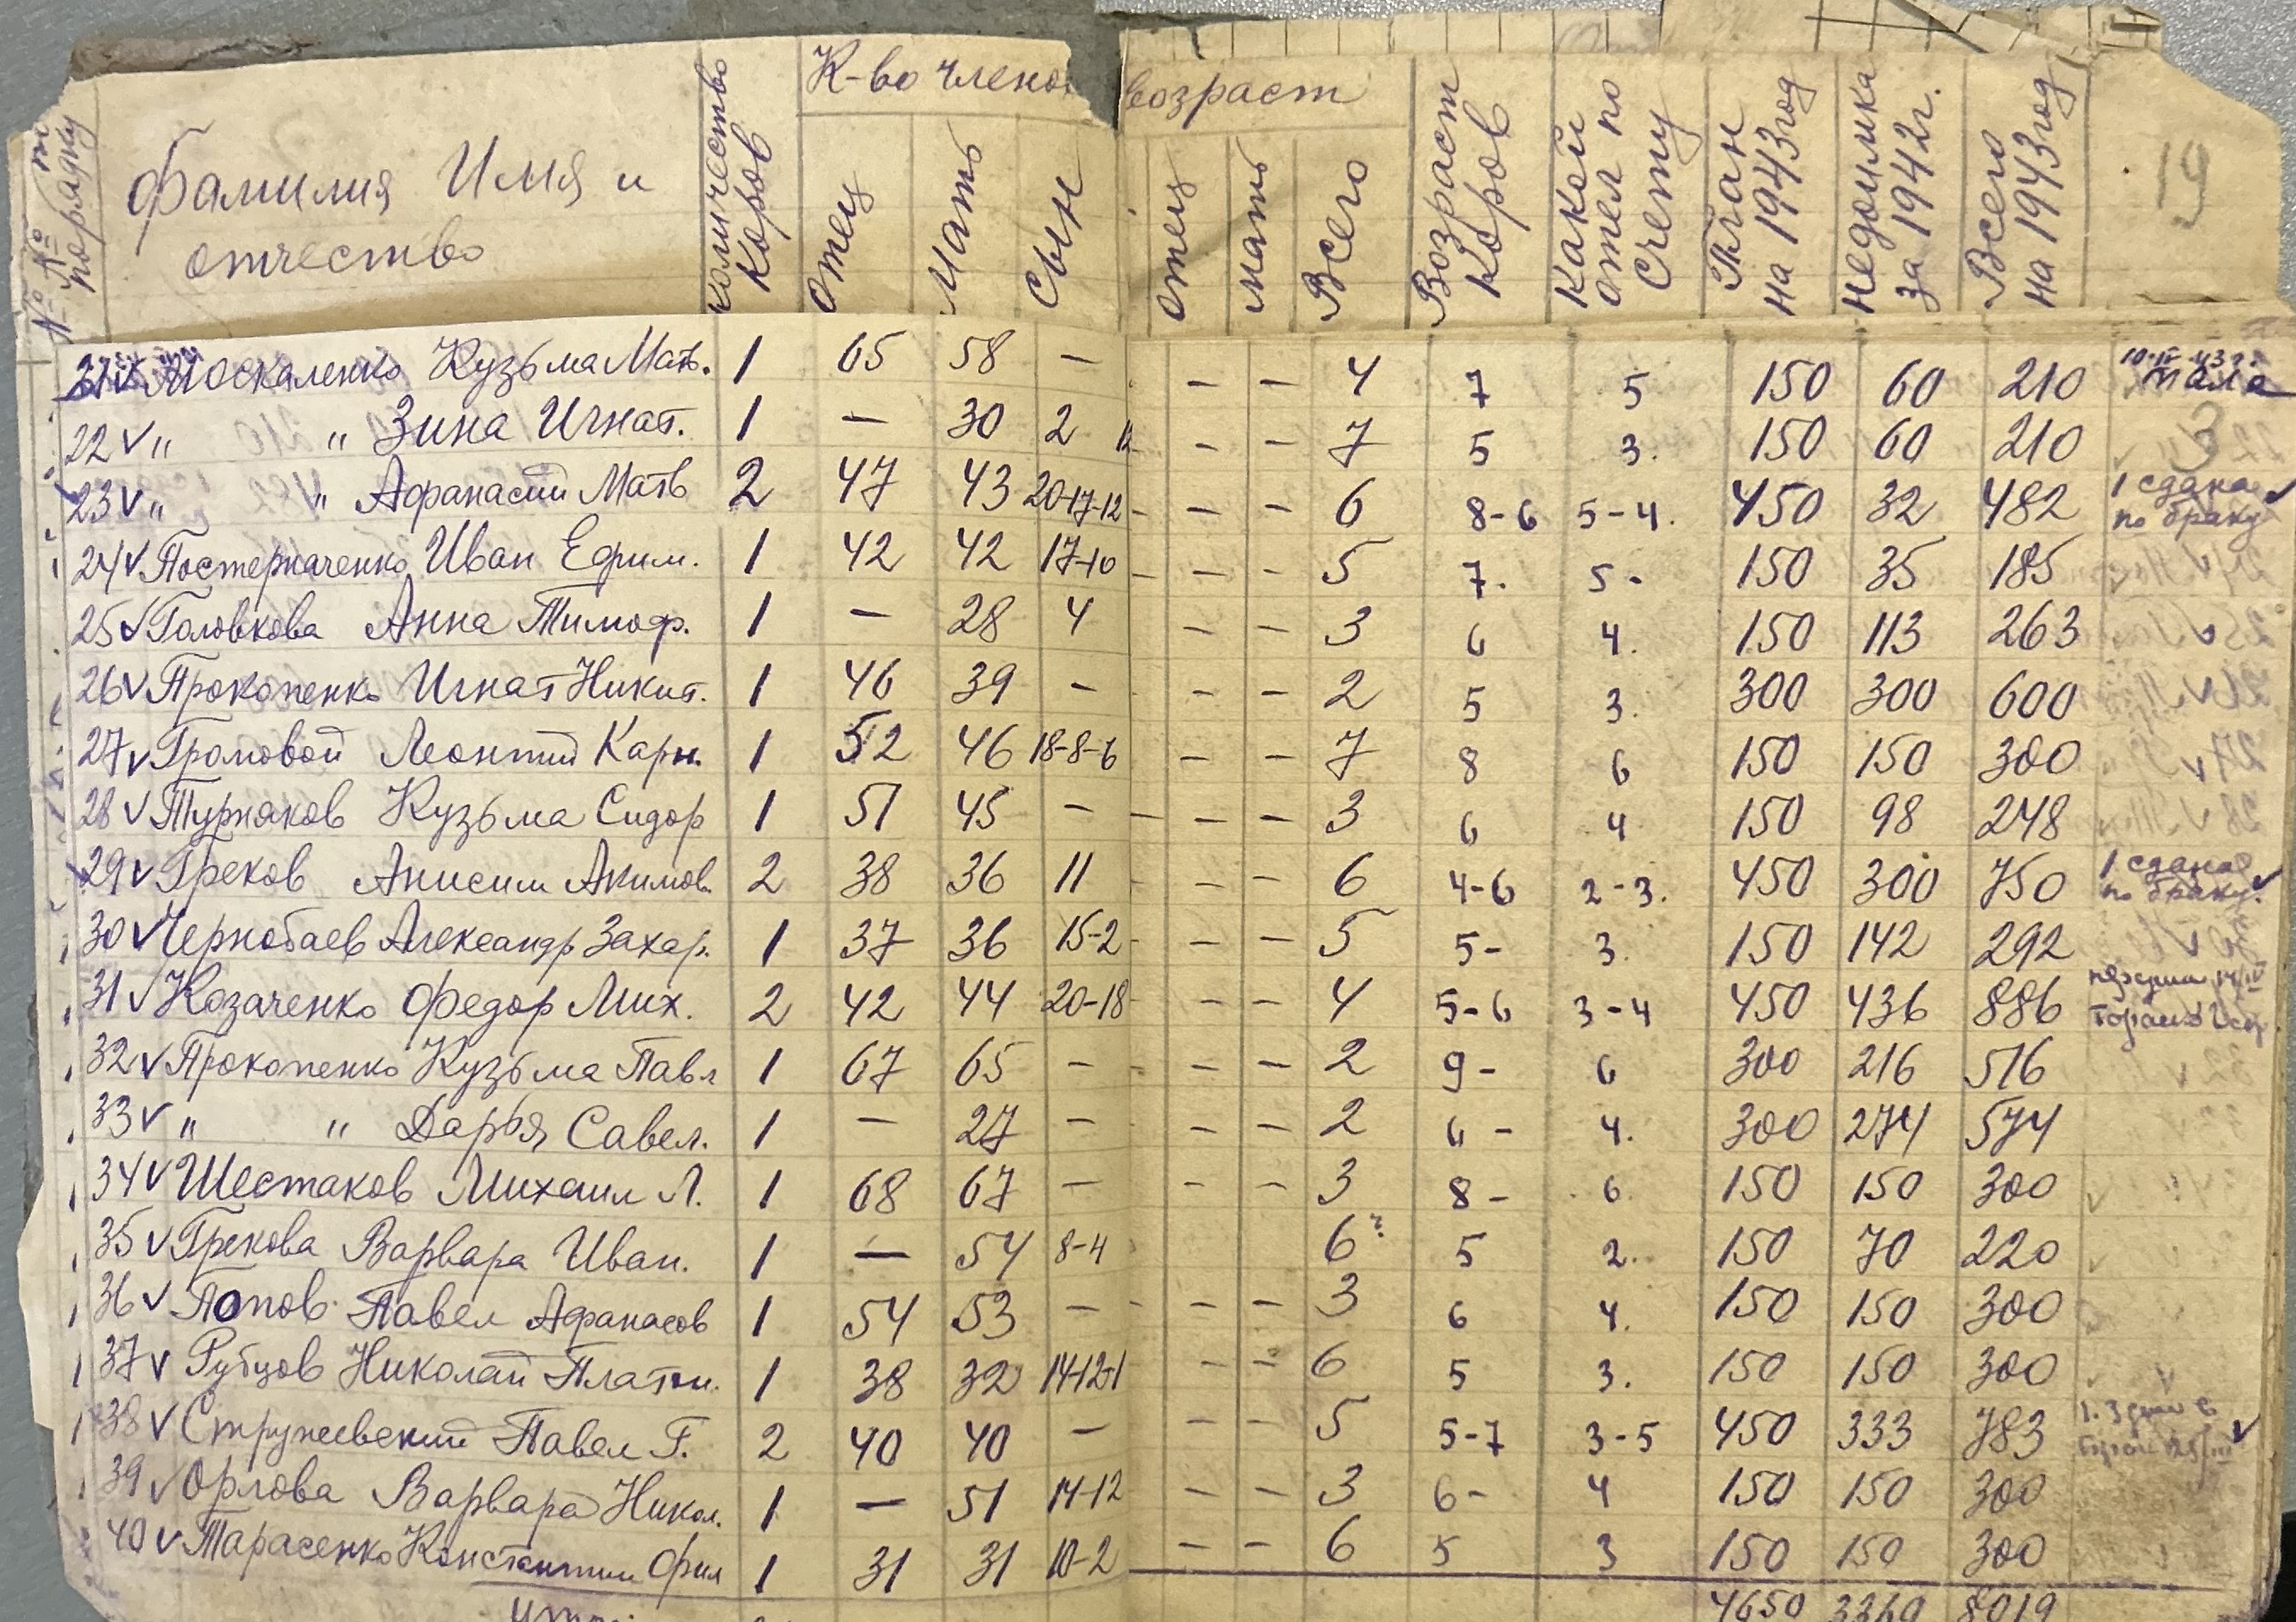 № № по порядку
Фамилия Имя и отчество
количество коров
К-во члено
возраст
отец
мать
сын
отец
мать
Всего
Возраст коров
Какой отел по счету
План на 1943 год
Недоимка за 1942 г.
Всего на 1943 год
19
21 v Москаленко Кузьма Матв. 1 65 58 – – – 4 7 5 150 60 210 10-IV-43 г. пала
22 v " " Зина Игнат. 1 – 30 2 – – 7 5 3. 150 60 210
23 v " " Афанасий Матв 2 47 43 20-17-12 – – – 6 8-6 5-4. 450 32 482 1 сдана по браку v
24 v Постерначенко Иван Ефим. 1 42 42 17-10 – – – 5 7. 5- 150 35 185
25 v Головкова Анна Тимоф. 1 – 28 4 – – 3 6 4. 150 113 263
26 v Прокопенко Игнат Никит. 1 46 39 – – – 2 5 3. 300 300 600
27 v Громовой Леонтий Карн. 1 52 46 18-8-6 – – 7 8 6 150 150 300
28 v Турнаков Кузьма Сидор 1 51 45 – – – – 3 6 4 150 98 248
29 v Греков Анисим Акимов. 2 38 36 11 – – – 6 4-6 2-3. 450 300 750 1 сдана по браку. v
30 v Чернобаев Александр Захар. 1 37 36 15-2 – – – 5 5- 3. 150 142 292
31 v Козаченко Федор Мих. 2 42 44 20-18 – – – 4 5-6 3-4 450 436 886
32 v Прокопенко Кузьма Павл 1 67 65 – – – – 2 9- 6 300 216 516
33 v " " Дарья Савел. 1 – 27 – – – 2 6- 4. 300 274 574
34 v Шестаков Михаил Л. 1 68 67 – – – 3 8- 6. 150 150 300
35 v Грекова Варвара Иван. 1 – 54 8-4 6? 5 2. 150 70 220
36 v Попов Павел Афанасов 1 54 53 – – – – 3 6 4. 150 150 300
37 v Рубцов Николай Платон. 1 38 32 14-12-1 – – 6 5 3. 150 150 300
38 v Стружевский Павел Г. 2 40 40 – – – 5 5-7 3-5 450 333 783
39 v Орлова Варвара Никол. 1 – 51 14-12 – – 3 6- 4 150 150 300
40 v Тарасенко Константин Фил 1 31 31 10-2 – – 6 5 3 150 150 300
4650 3369 8019